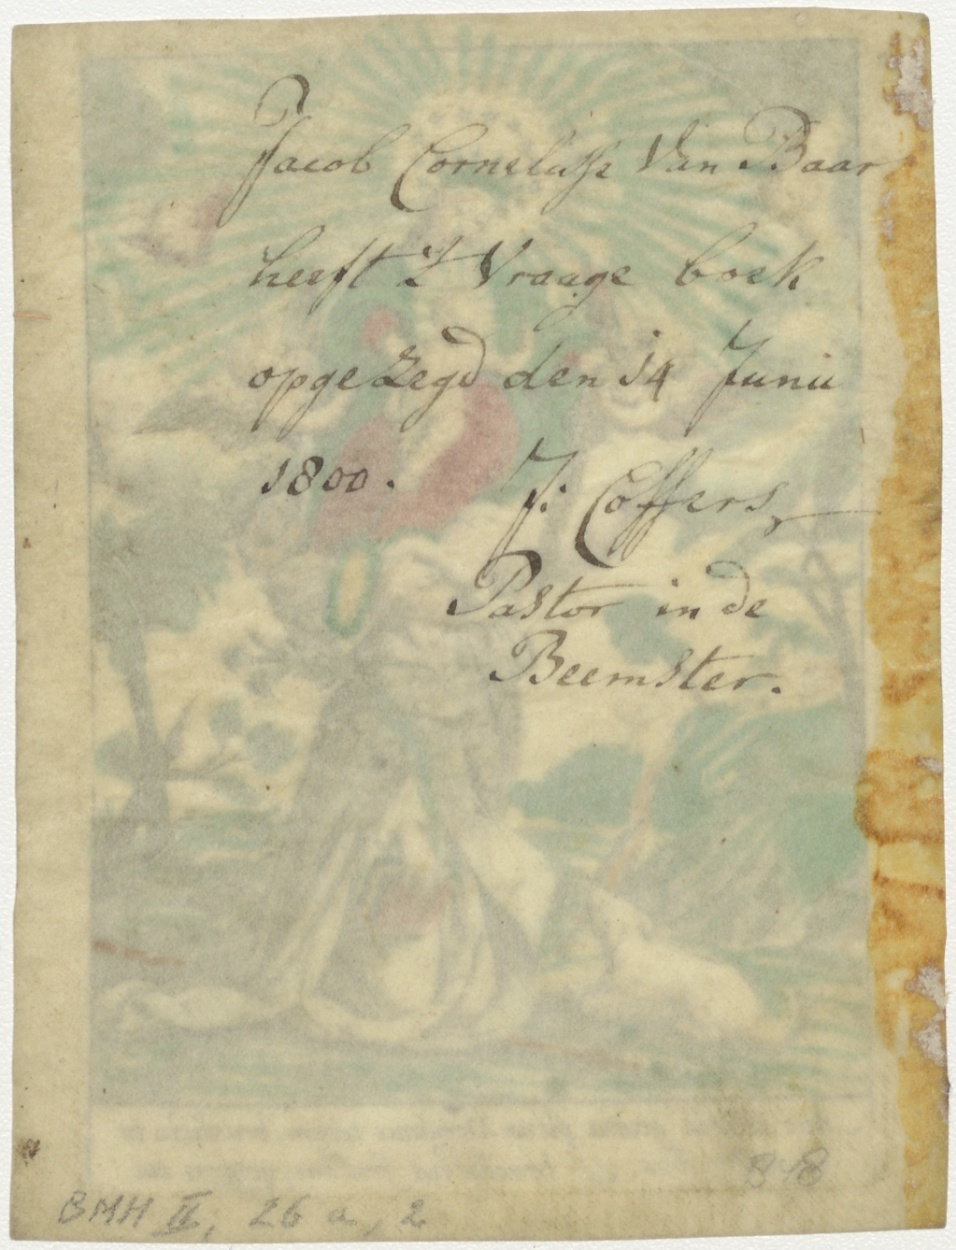 Jacob Cornelisse Van Baar
heeft 't Vraage boek
opgezegd den 14 Junii
1800. J: Coffers,
Pastor in de
Beemster.
848
BMH II, 26 a, 2